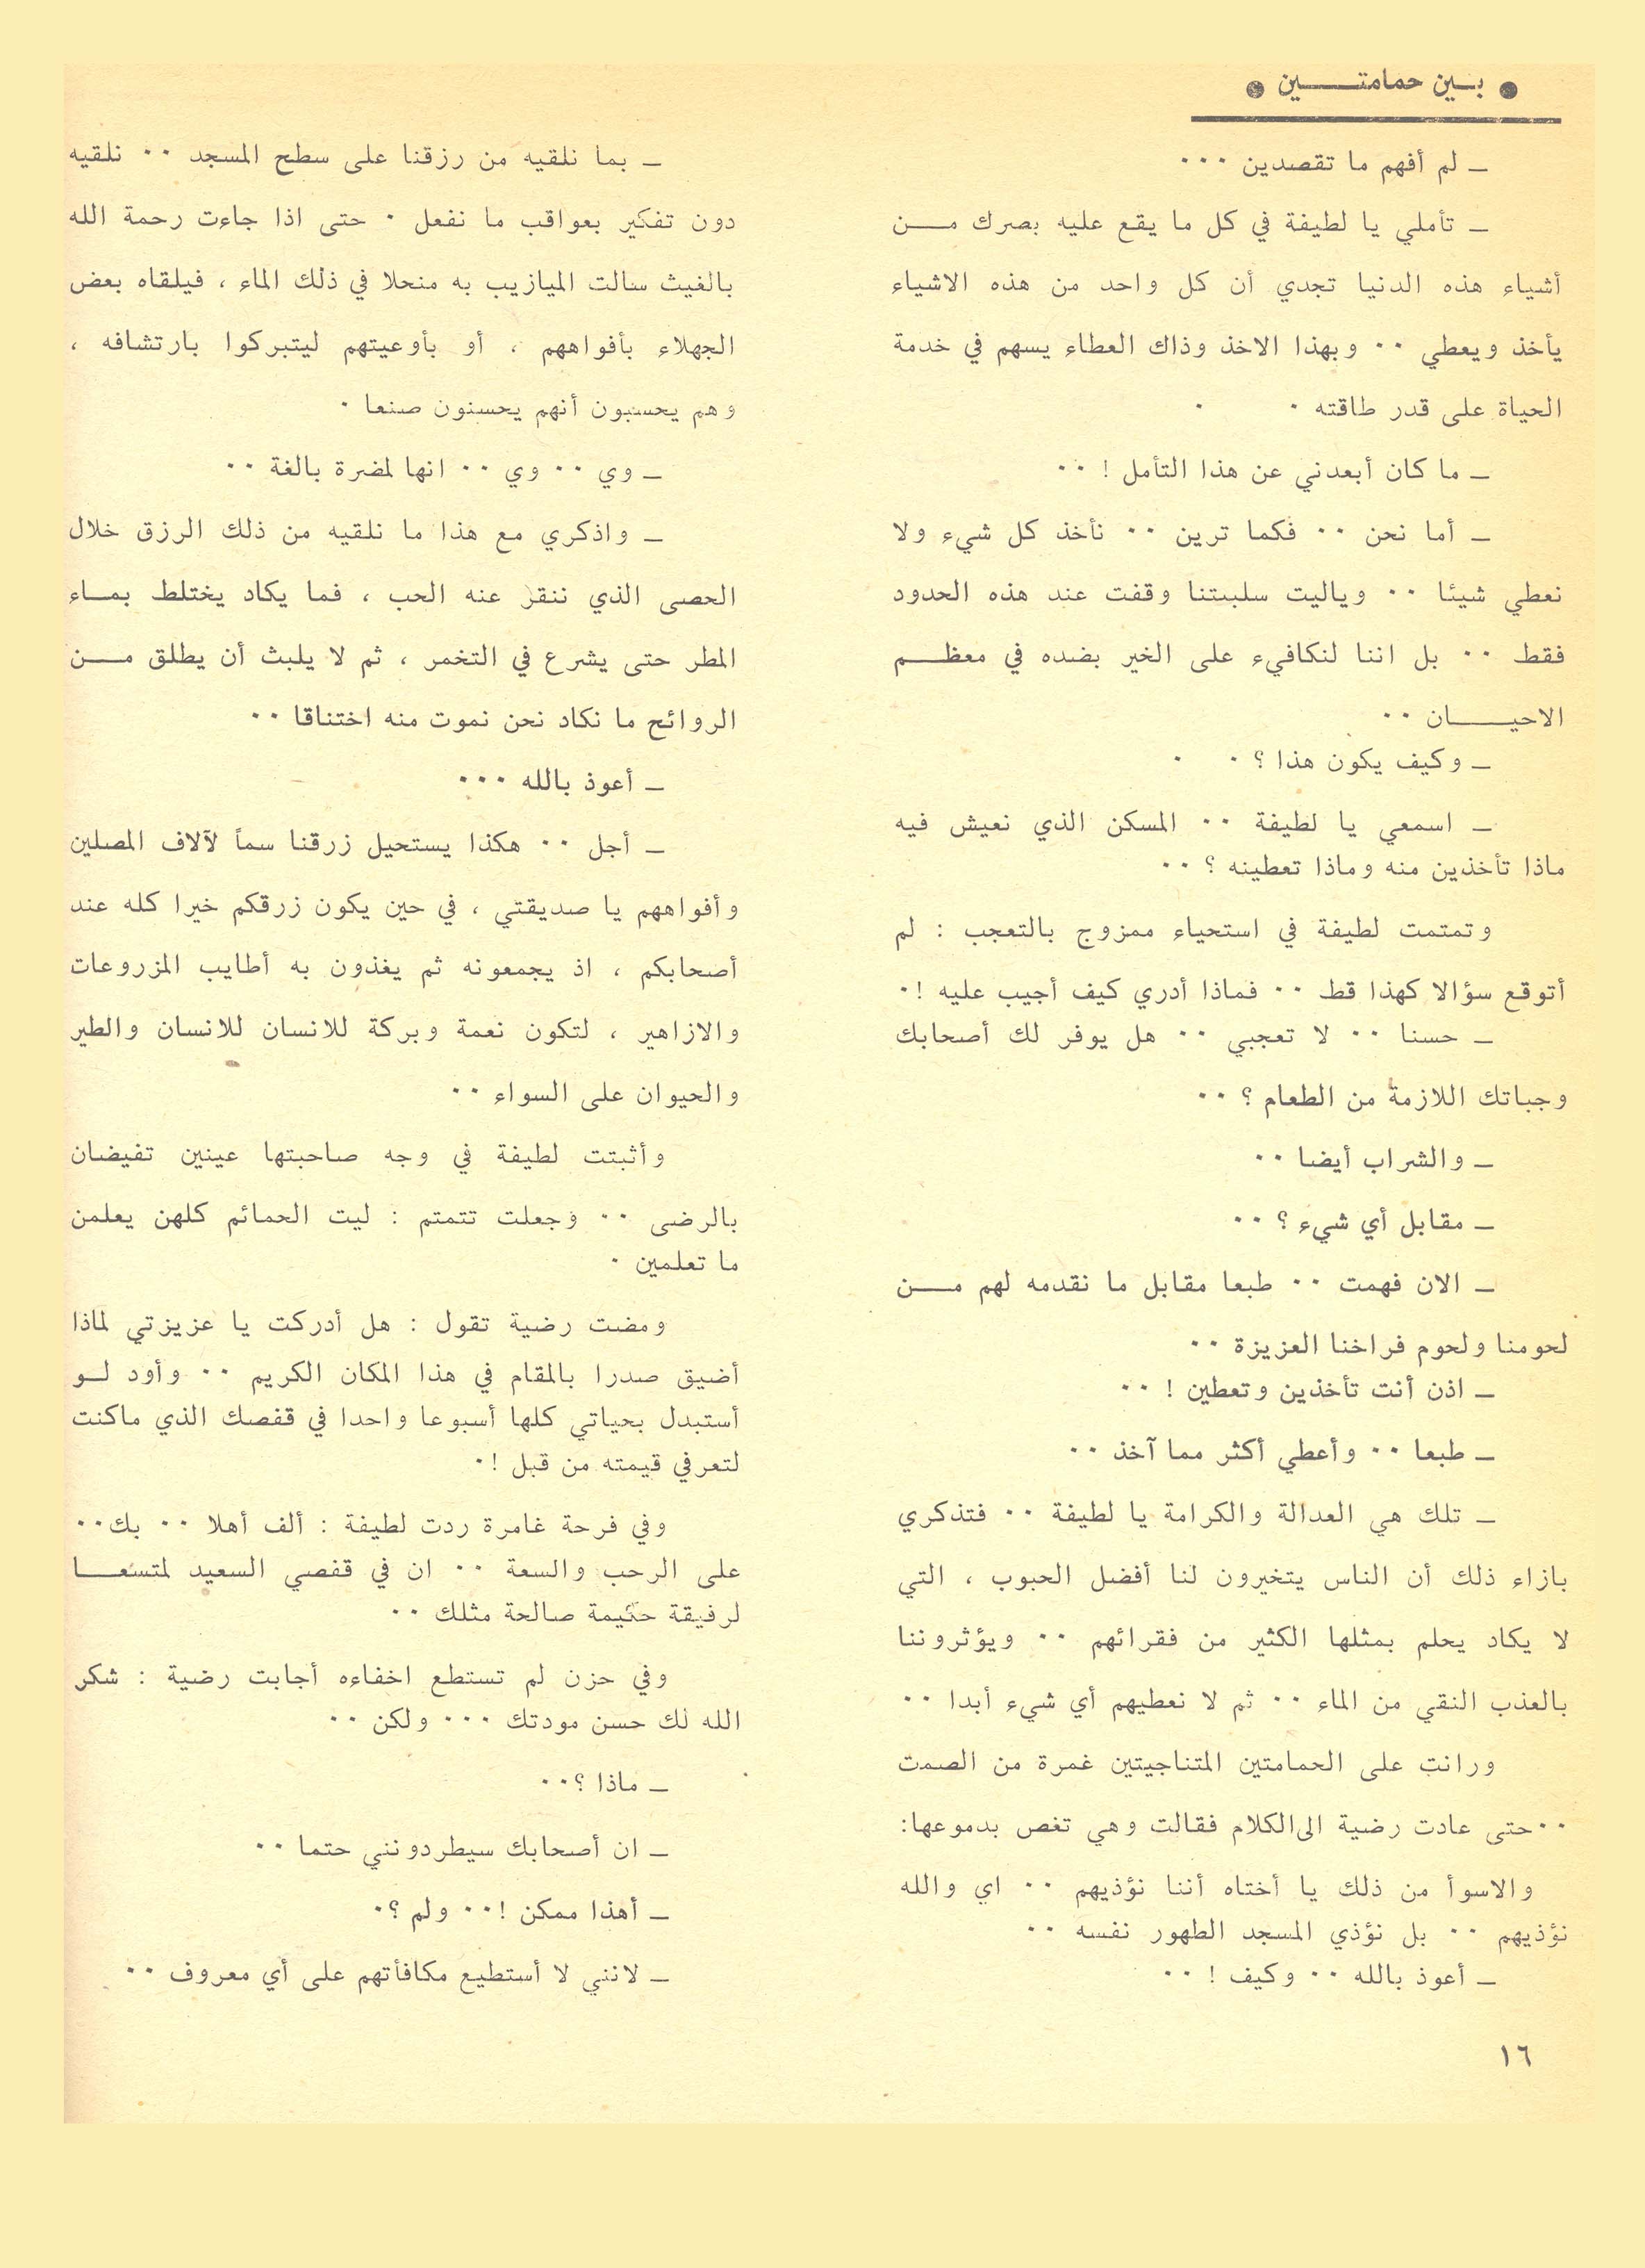 ● بــين حمامتــــــين ●
ــ لم أفهم ما تقصدين ٠٠٠
ــ تأملي يا لطيفة في كل ما يقع عليه بصرك مــــن
أشياء هذه الدنيا تجدي أن كل واحد من هذه الاشياء
يأخذ ويعطي ٠٠ وبهذا الاخذ وذاك العطاء يسهم في خدمة
الحياة على قدر طاقته ٠
ــ ما كان أبعدني عن هذا التأمل ! ٠٠
ــ أما نحن ٠٠ فكما ترين ٠٠ نأخذ كل شيء ولا
نعطي شيئا ٠٠ وياليت سلبيتنا وقفت عند هذه الحدود
فقط ٠٠ بل اننا لنكافيء على الخير بضده في معظــــم
الاحيــــــان ٠٠
ــ وكيف يكون هذا ؟ ٠
ــ اسمعي يا لطيفة ٠٠ المسكن الذي نعيش فيه
ماذا تأخذين منه وماذا تعطينه ؟ ٠٠
وتمتمت لطيفة في استحياء ممزوج بالتعجب : لم
أتوقع سؤالا كهذا قط ٠٠ فماذا أدري كيف أجيب عليه !٠
ــ حسنا ٠٠ لا تعجبي ٠٠ هل يوفر لك أصحابك
وجباتك اللازمة من الطعام ؟ ٠٠
ــ والشراب أيضا ٠٠
ــ مقابل أي شيء ؟ ٠٠
ــ الان فهمت ٠٠ طبعا مقابل ما نقدمه لهم مــــن
لحومنا ولحوم فراخنا العزيزة ٠٠
ــ اذن أنت تأخذين وتعطين ! ٠٠
ــ طبعا ٠٠ وأعطي أكثر مما آخذ ٠٠
ــ تلك هي العدالة والكرامة يا لطيفة ٠٠ فتذكري
بازاء ذلك أن الناس يتخيرون لنا أفضل الحبوب ، التي
لا يكاد يحلم بمثلها الكثير من فقرائهم ٠٠ ويؤثروننا
بالعذب النقي من الماء ٠٠ ثم لا نعطيهم أي شيء أبدا ٠٠
ورانت على الحمامتين المتناجيتين غمرة من الصمت
٠٠حتى عادت رضية الى الكلام فقالت وهي تغص بدموعها:
والاسوأ من ذلك يا أختاه أننا نؤذيهم ٠٠ اي والله
نؤذيهم ٠٠ بل نؤذي المسجد الطهور نفسه ٠٠
ــ أعوذ بالله ٠٠ وكيف ! ٠٠
ــ بما نلقيه من رزقنا على سطح المسجد ٠٠ نلقيه
دون تفكير بعواقب ما نفعل ٠ حتى اذا جاءت رحمة الله
بالغيث سالت الميازيب به منحلا في ذلك الماء ، فيلقاه بعض
الجهلاء بأفواههم ، أو بأوعيتهم ليتبركوا بارتشافه ،
وهم يحسبون أنهم يحسنون صنعا ٠
ــ وي ٠٠ وي ٠٠ انها لمضرة بالغة ٠٠
ــ واذكري مع هذا ما نلقيه من ذلك الرزق خلال
الحصى الذي ننقر عنه الحب ، فما يكاد يختلط بمــاء
المطر حتى يشرع في التخمر ، ثم لا يلبث أن يطلق مــــن
الروائح ما نكاد نحن نموت منه اختناقا ٠٠
ــ أعوذ بالله ٠٠٠
ــ أجل ٠٠ هكذا يستحيل زرقنا سماً لآلاف المصلين
وأفواههم يا صديقتي ، في حين يكون زرقكم خيرا كله عند
أصحابكم ، اذ يجمعونه ثم يغذون به أطايب المزروعات
والازاهير ، لتكون نعمة وبركة للانسان للانسان والطير
والحيوان على السواء ٠٠
وأثبتت لطيفة في وجه صاحبتها عينين تفيضان
بالرضى ٠٠ وجعلت تتمتم : ليت الحمائم كلهن يعلمن
ما تعلمين ٠
ومضت رضية تقول : هل أدركت يا عزيزتي لماذا
أضيق صدرا بالمقام في هذا المكان الكريم ٠٠ وأود لــو
أستبدل بحياتي كلها أسبوعا واحدا في قفصك الذي ماكنت
لتعرفي قيمته من قبل !٠
وفي فرحة غامرة ردت لطيفة : ألف أهلا ٠٠ بك٠٠
على الرحب والسعة ٠٠ ان في قفصي السعيد لمتسعــــا
لرفيقة حكيمة صالحة مثلك ٠٠
وفي حزن لم تستطع اخفاءه أجابت رضية : شكر
الله لك حسن مودتك ٠٠٠ ولكن ٠٠
ــ ماذا ؟٠٠
ــ ان أصحابك سيطردونني حتما ٠٠
ــ أهذا ممكن !٠٠ ولم ؟٠
ــ لانني لا أستطيع مكافأتهم على أي معروف ٠٠
١٦